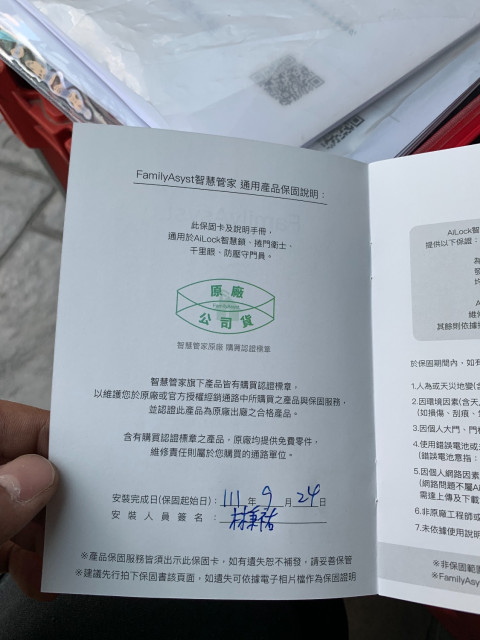 FamilyAsyst智慧管家 通用產品保固說明：
此保固卡及說明手冊，
適用於AiLock智慧鎖、捲門衛士、
千里眼、防壓守門員。
原廠
FamilyAsyst
公司貨
智慧管家原廠 購買認證標章
智慧管家旗下產品皆有購買認證標章，
以維護您於原廠或官方授權經銷通路中所購買之產品與保固服務，
並認證此產品為原廠出廠之合格產品。
含有購買認證標章之產品，原廠均提供免費零件，
維修責任則屬於您購買的通路單位。
安裝完成日(保固起始日)：111年9月24日
安裝人員簽名：
※產品保固服務皆須出示此保固卡，如有遺失恕不補發，請妥善保管
※建議先行拍下保固書該頁面，如遺失可依據電子相片檔作為保固證明
AiLock智
提供以下保證：
為
發
均
A
維修
其餘則依據
於保固期間內、如有
1.人為或天災地變(含
2.因環境因素(含天
(如損傷、刮痕、
3.因個人大門、門
4.使用錯誤電池或
(錯誤電池意指：
5.因個人網路因素
(網路問題不屬A
需達上傳及下載
6.非原廠工程師或
7.未依據使用說明
※非保固範圍
※FamilyAsy